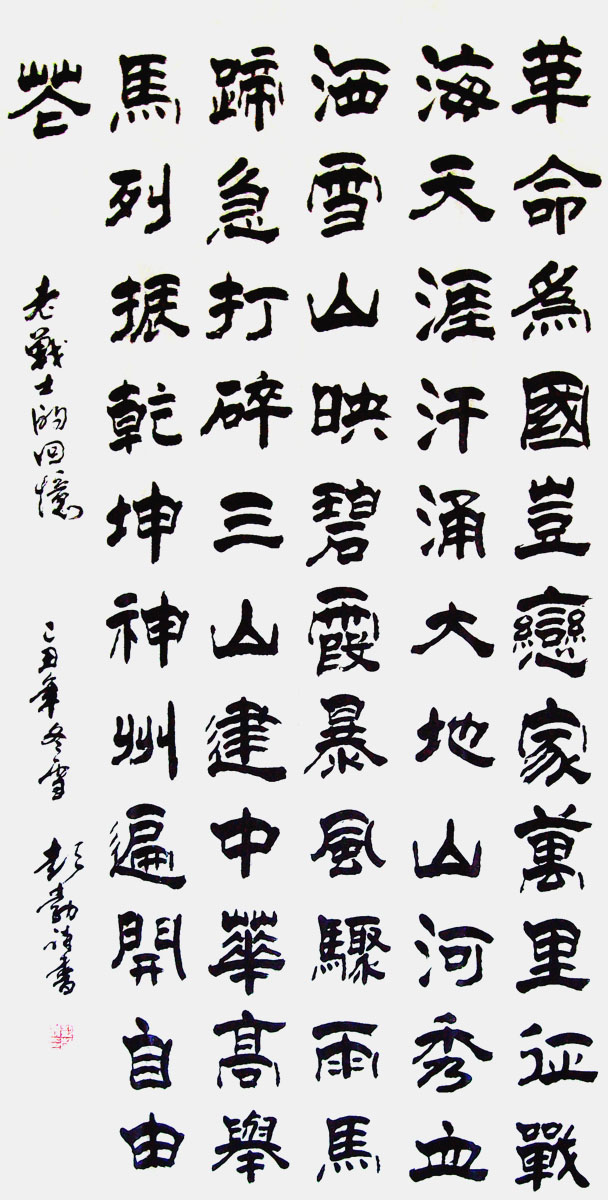 革命為國豈戀家萬里征戰
海天涯汗涌大地山河秀血
洒雪山映碧霞暴風驟雨馬
蹄急打碎三山建中華高舉
馬列振乾坤神州遍開自由
花
老戰士的回憶 己丑年冬雪 彭勃祥書